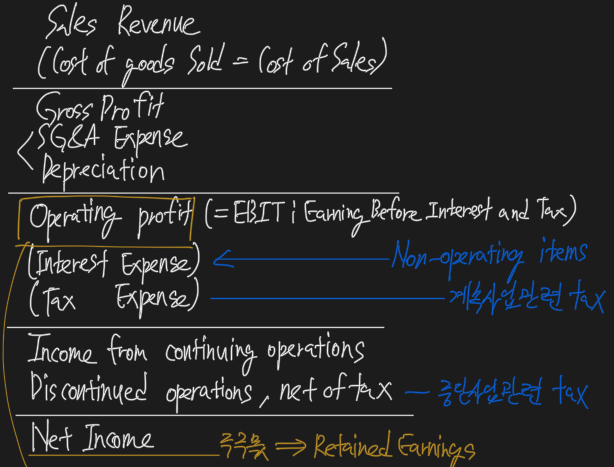 Sales Revenue
(Cost of goods Sold = Cost of Sales)
Gross Profit
SG&A Expense
Depreciation
Operating profit (= EBIT ; Earning Before Interest and Tax)
(Interest Expense) ← Non-operating items
(Tax Expense) 계속사업관련 tax
Income from continuing operations
Discontinued operations, net of tax - 중단사업관련 tax
Net Income 주주몫 ⇒ Retained Earnings